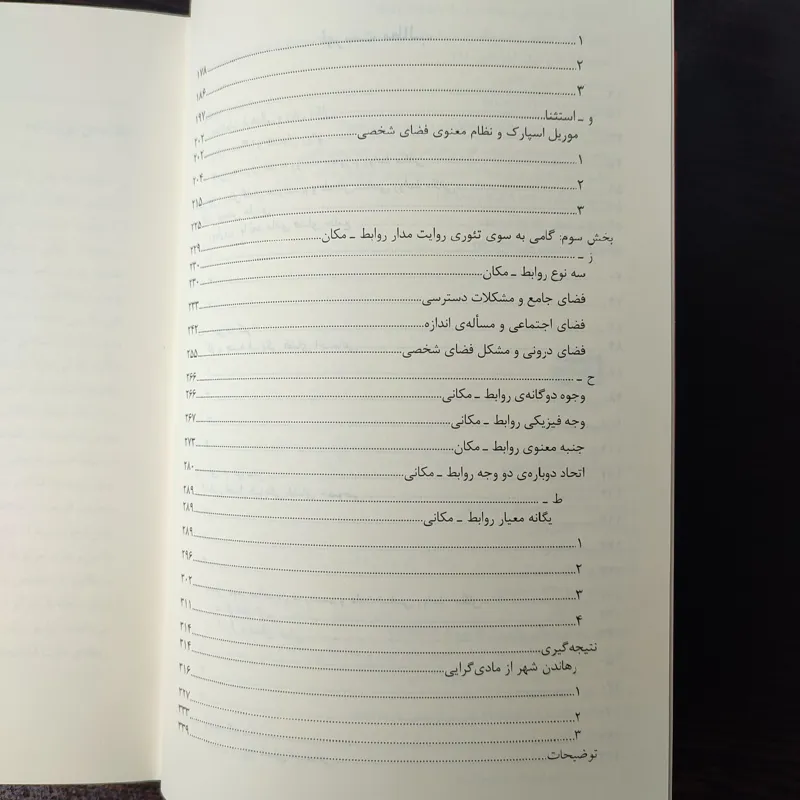 ۱ ۱۷۸
۲ ۱۸۶
۳ ۱۹۷
و ـ استثنا ۲۰۲
موریل اسپارک و نظام معنوی فضای شخصی ۲۰۲
۱ ۲۰۴
۲ ۲۱۵
۳ ۲۲۵
بخش سوم: گامی به سوی تئوری روایت مدار روابط ـ مکان ۲۲۹
ز ـ ۲۳۰
سه نوع روابط ـ مکان ۲۳۰
فضای جامع و مشکلات دسترسی ۲۳۳
فضای اجتماعی و مسأله‌ی اندازه ۲۴۲
فضای درونی و مشکل فضای شخصی ۲۵۵
ح ـ ۲۶۶
وجوه دوگانه‌ی روابط ـ مکانی ۲۶۶
وجه فیزیکی روابط ـ مکانی ۲۶۷
جنبه معنوی روابط ـ مکان ۲۷۳
اتحاد دوباره‌ی دو وجه روابط ـ مکانی ۲۸۰
ط ـ ۲۸۹
یگانه معیار روابط ـ مکانی ۲۸۹
۱ ۲۸۹
۲ ۲۹۶
۳ ۳۰۲
۴ ۳۱۱
نتیجه‌گیری ۳۱۴
رهاندن شهر از مادی‌گرایی ۳۱۴
۱ ۳۱۶
۲ ۳۲۷
۳ ۳۳۳
توضیحات ۳۳۹